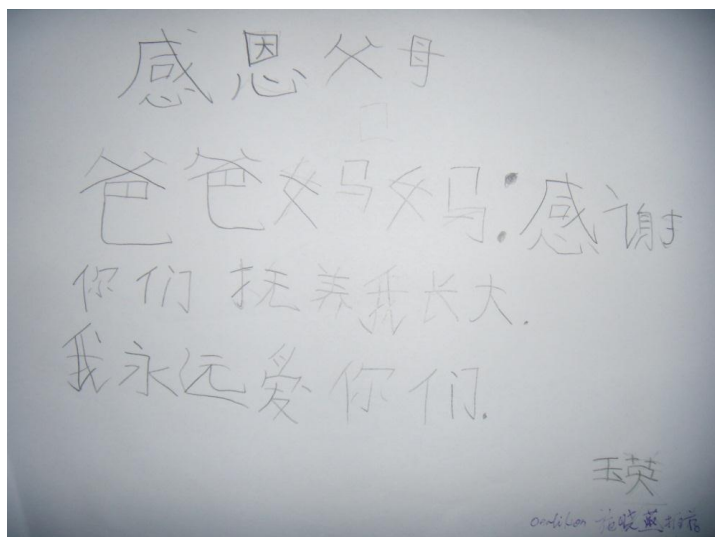 感恩父母
爸爸妈妈:感谢
你们抚养我长大.
我永远爱你们.
玉英